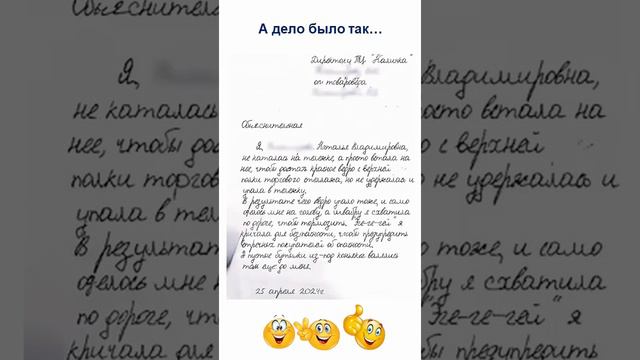 А дело было так...
Директору ТЦ "Калинка"
от товароведа
Объяснительная
Я, Наталья Владимировна,
не каталась на тележке, а просто встала на
нее, чтобы достать красное ведро с верхней
полки торгового стеллажа, но не удержалась и
упала в тележку.
В результате чего ведро упало тоже, и само
оделось мне на голову, а швабру я схватила
по дороге, чтобы тормозить. "Ге-ге-гей" я
кричала для безопасности, чтобы предупредить
встречных покупателей об опасности.
А пустые бутылки из-под коньяка валялись
там еще до меня.
25 апреля 2024г.